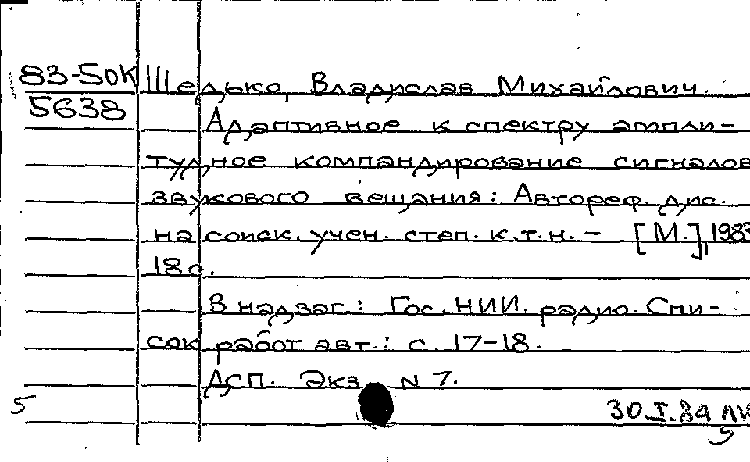 83-5ОК Шедько, Владислав Михайлович.
5638 Адаптивное к спектру ампли-
тудное компандирование сигналов
звукового вещания: Автореф. дис.
на соиск. учен. степ. к.т.н. – [М.], 1983
18с.
В надзаг.: Гос. НИИ. радио. Спи-
сок работ авт.: с. 17-18.
ДСП. Экз. N 7.
5 30.I.84